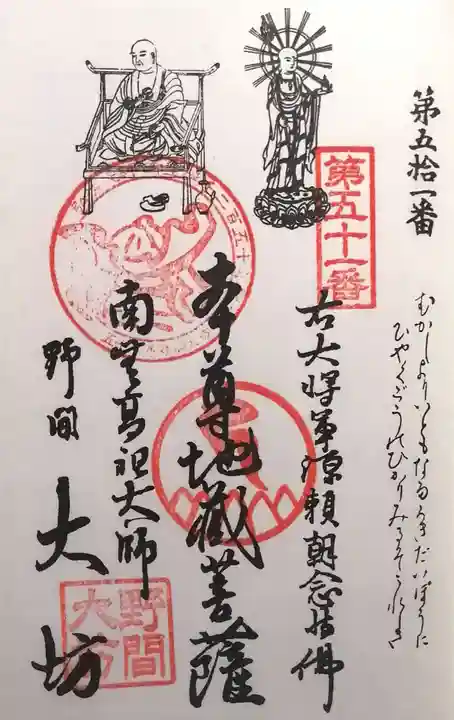 第五拾一番
むかしよりいともたゆるときだいぼうに
ひやくごうのひかりみるぞうれしき
第五十一番
右大将軍源頼朝念持佛
本尊地蔵菩薩
南無高祖大師
野間 大坊
百五十
野間
大坊